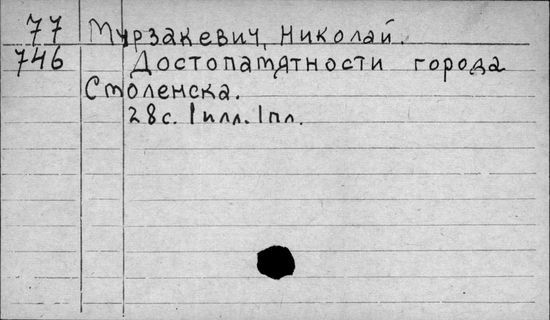 77 Мурзакевич, Николай.
746 Достопамятности города
Смоленска.
28с. 1 илл. 1 пл.